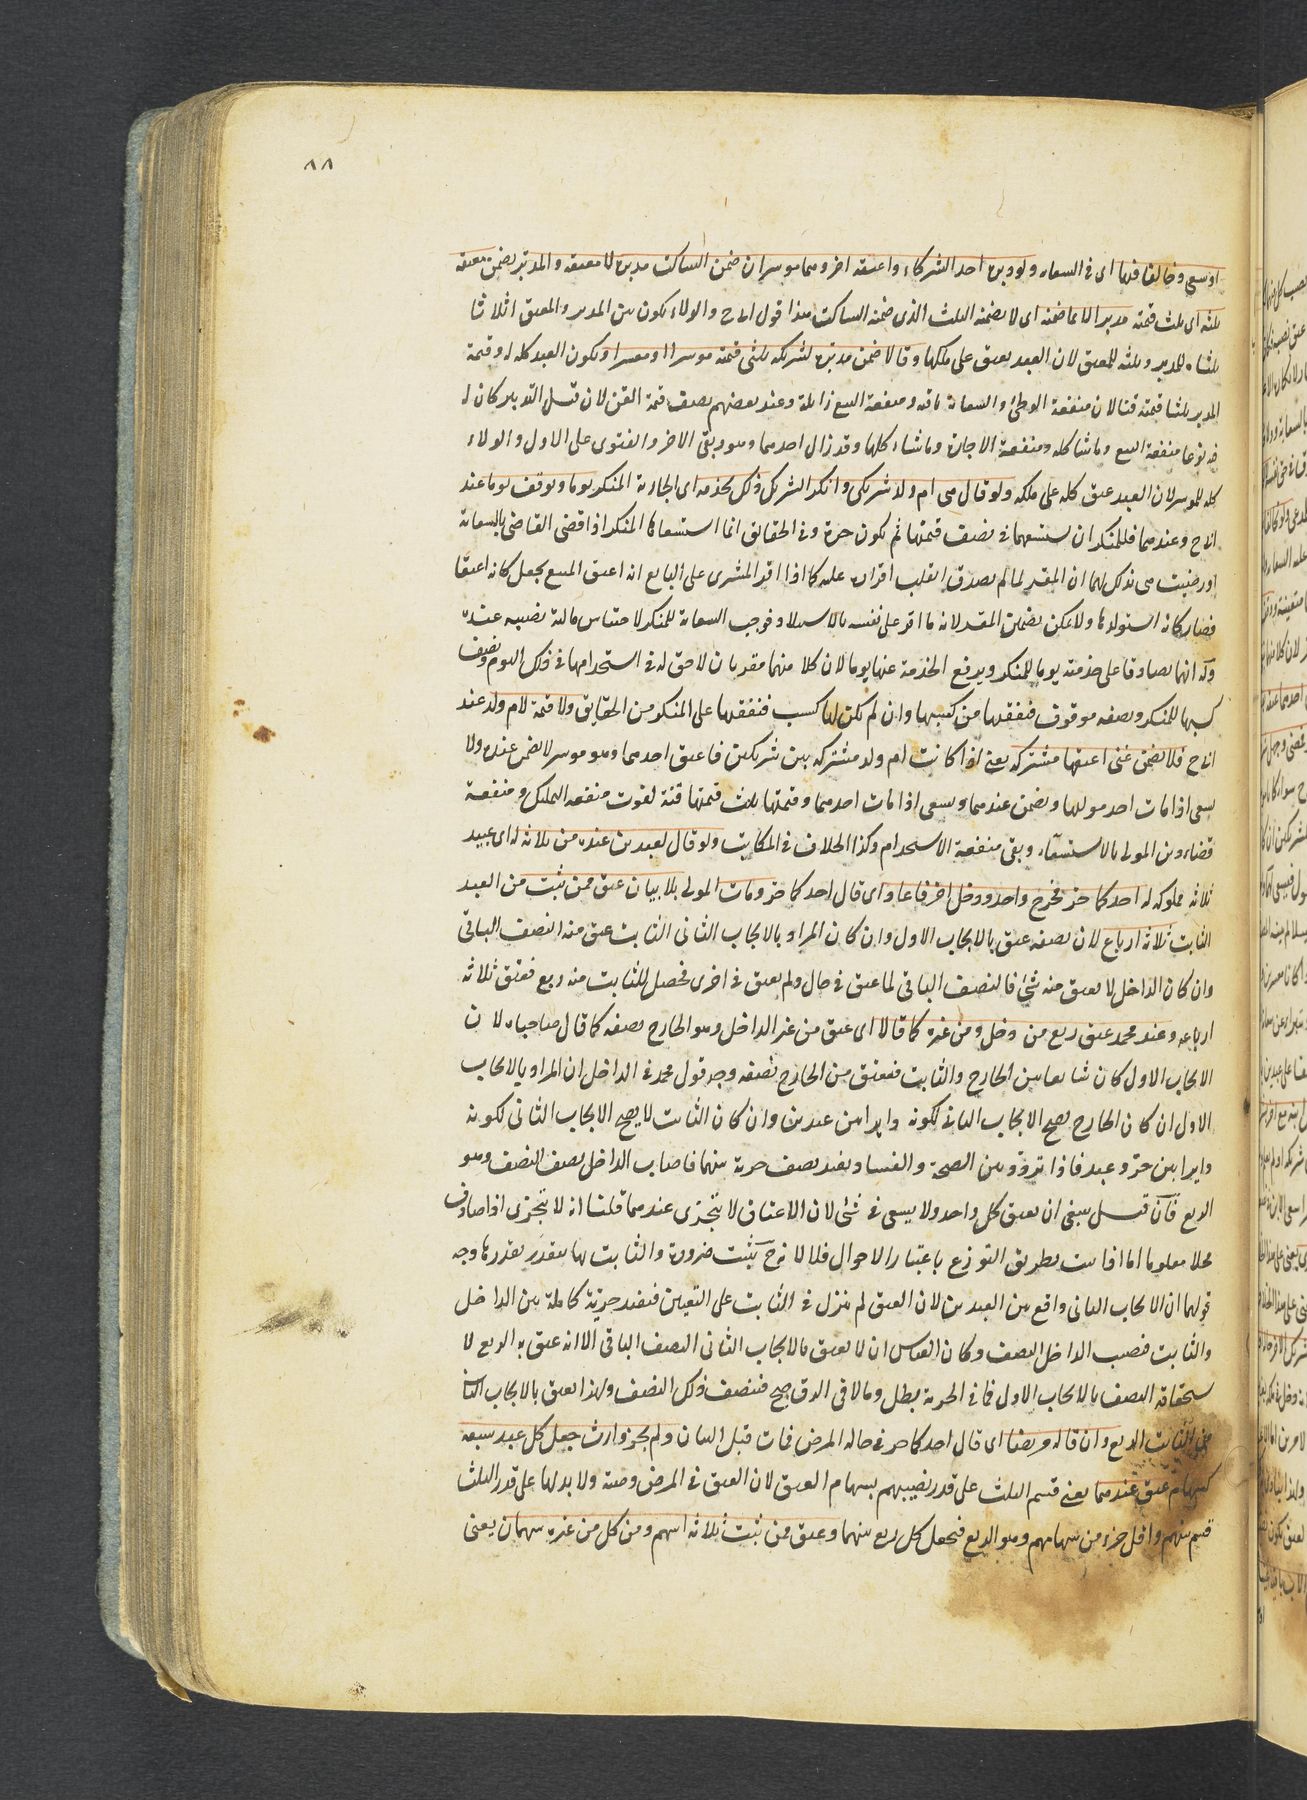 ٨٨
او سعى وخالفا فيها اى فى السعاه ولو دبره احد الشركاء واعتقه اخر وهما موسران ضمن الساكت مدبره لا معتقه والمدبر يضمن معتقه
ثلثه اى ثلث قيمته مدبرا لا ما ضمنه اى لا يضمنه الثلث الذى ضمنه الساكت هذا قول ابى ح والولاء يكون بين المدبر والمعتق اثلاثا
ثلثاه للمدبر وثلثه للمعتق لان العبد يعتق على ملكها وقالا ضمن مدبره لشريكه ثلثى قيمته موسرا او معسرا ويكون العبد كله له وقيمة
المدبر ثلثا قيمته قنا لان منفعة الوطئ والسعاية باقية ومنفعة البيع زائلة وعند بعضهم نصف قيمة القن لان قبل التدبير كان له
فيه نوعا منفعة البيع وما شاكله ومنفعة الاجارة وما شاء كلها وقد زال احدهما وهو وبقى الاخر والفتوى على الاول والولاء
كله للموسر لان العبد عتق كله على ملكه ولو قال هى ام ولد شريكى وانكر الشريك ذلك تخدمه اى الجارية المنكر يوما وتوقف يوما عند
ابى ح وعندهما فللمنكر ان يستسعيها فى نصف قيمتها ثم تكون حرة وفى الحقائق انما استسعاها المنكر اذا قضى القاضى بالسعاية
او رضيت هى بذلك لهما ان المقر لما لم يصدق انقلب اقراره عليه كما اذا اقر المشترى على البايع انه اعتق المبيع يجعل كانه اعتقا
فصار كانه استولدها ولا يمكن تضمين المقر لانه ما اقر على نفسه بالاستيلاد فوجب السعاية للمنكر لاحتباس مالية نصيبه عنده
وله انهما تصادقا على خدمته يوما للمنكر ويرفع الخدمة عنها يوما لان كلا منهما مقر بان لا حق له فى استخدامها فى ذلك اليوم ونصف
كسبها للمنكر ونصفه موقوف فنفقتها من كسبها وان لم يكن لها كسب فنفقتها على المنكر من الحقايق ولا قيمة لام ولد عند
ابى ح فلا يضمن غنى اعتقها مشتركه يعنى اذا كانت ام ولد مشتركه بين شريكين فاعتق احدهما وهو موسر لا يضمن عنده ولا
يسعى اذا مات احد موليها ويضمن عندهما ويسعى اذا مات احدهما وقيمتها ثلث قيمتها قنة لفوت منفعه التمليك ومنفعة
قضاء دين المولى بالاستسعاء وبقى منفعة الاستخدام وكذا الخلاف فى المكاتبت ولو قال لعبدين عنده من ثلاثه له اى عبيد
ثلاثه مملوكه له احدكما حر فخرج واحد ودخل اخر فاعاد اى قال احدكما حر ومات المولى بلا بيان عتق ممن ثبت من العبد
الثابت ثلاثة ارباع لان نصفه عتق بالايجاب الاول وان كان المراد بالايجاب الثانى الثابت عتق منه النصف الباقى
وان كان الداخل لا يعتق منه شئ فالنصف الباقى لما عتق فى حال ولم يعتق فى اخرى فحصل للثابت منه ربع فعتق ثلاثه
ارباعه وعند محمد عتق ربع من دخل ومن غيره كما قالا اى عتق من غير الداخل وهو الخارج نصفه كما قال صاحباه لان
الايجاب الاول كان شايعا بين الخارج والثابت فعتق من الخارج نصفه وجه قول محمد فى الداخل ان المراد بالايجاب
الاول ان كان الخارج يصح الايجاب الثانى لكونه دايرا بين عبدين وان كان الثابت لا يصح الايجاب الثانى لكونه
دايرا بين حر وعبد فاذا تردد بين الصحة والفساد يفيد نصف حرية بينهما فاصاب الداخل نصف النصف وهو
الربع فآن قيل ينبغى ان يعتق كل واحد ولا يسعى فى شئ لان الاعتاق لا يتجزى عندهما قلنا انه لا يتجزى اذا صادف
محلا معلوما اما اذا ثبت بطريق التوزيع باعتبار الاحوال فلا لانه ح يثبت ضرورة والثابت بها يتقدر بقدرها وجه
قولهما ان الايجاب الثانى واقع بين العبدين لان العتق لم ينزل فى الثابت على التعيين فيفيد حرية كاملة بين الداخل
والثابت فنصب الداخل النصف وكان القياس ان لا يعتق بالايجاب الثانى النصف الباقى الا انه عتق به الربع لا
ستحقاقه النصف بالايجاب الاول فما فى الحرية بطل وما لاقى الرق صح فتنصف ذلك النصف ولهذا يعتق بالايجاب الثانى
من الثابت الربع وان قاله مريضا اى قال احدكما حر فى حاله المرض فمات قبل البيان ولم يجز وارث جعل كل عبد سبعه
كسهام عتق عندهما يعنى قسم الثلث على قدر نصيبهم بسهام العتق لان العتق فى المرض وصية ولا بد لها على قدر الثلث
قسم بينهم واقل جزء من سهامهم وهو الربع فنجعل كل ربع سهما وعتق ممن ثبت ثلاثه اسهم ومن كل من غيره سهمان يعنى